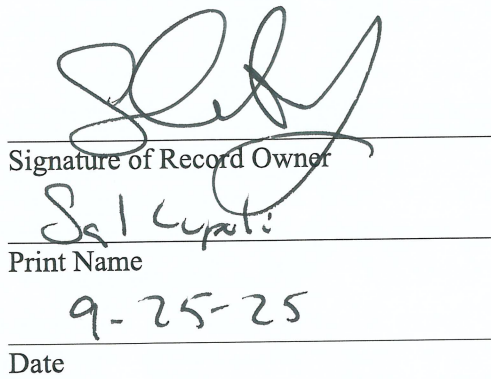 Signature of Record Owner
Sal Lupoli
Print Name
9-25-25
Date